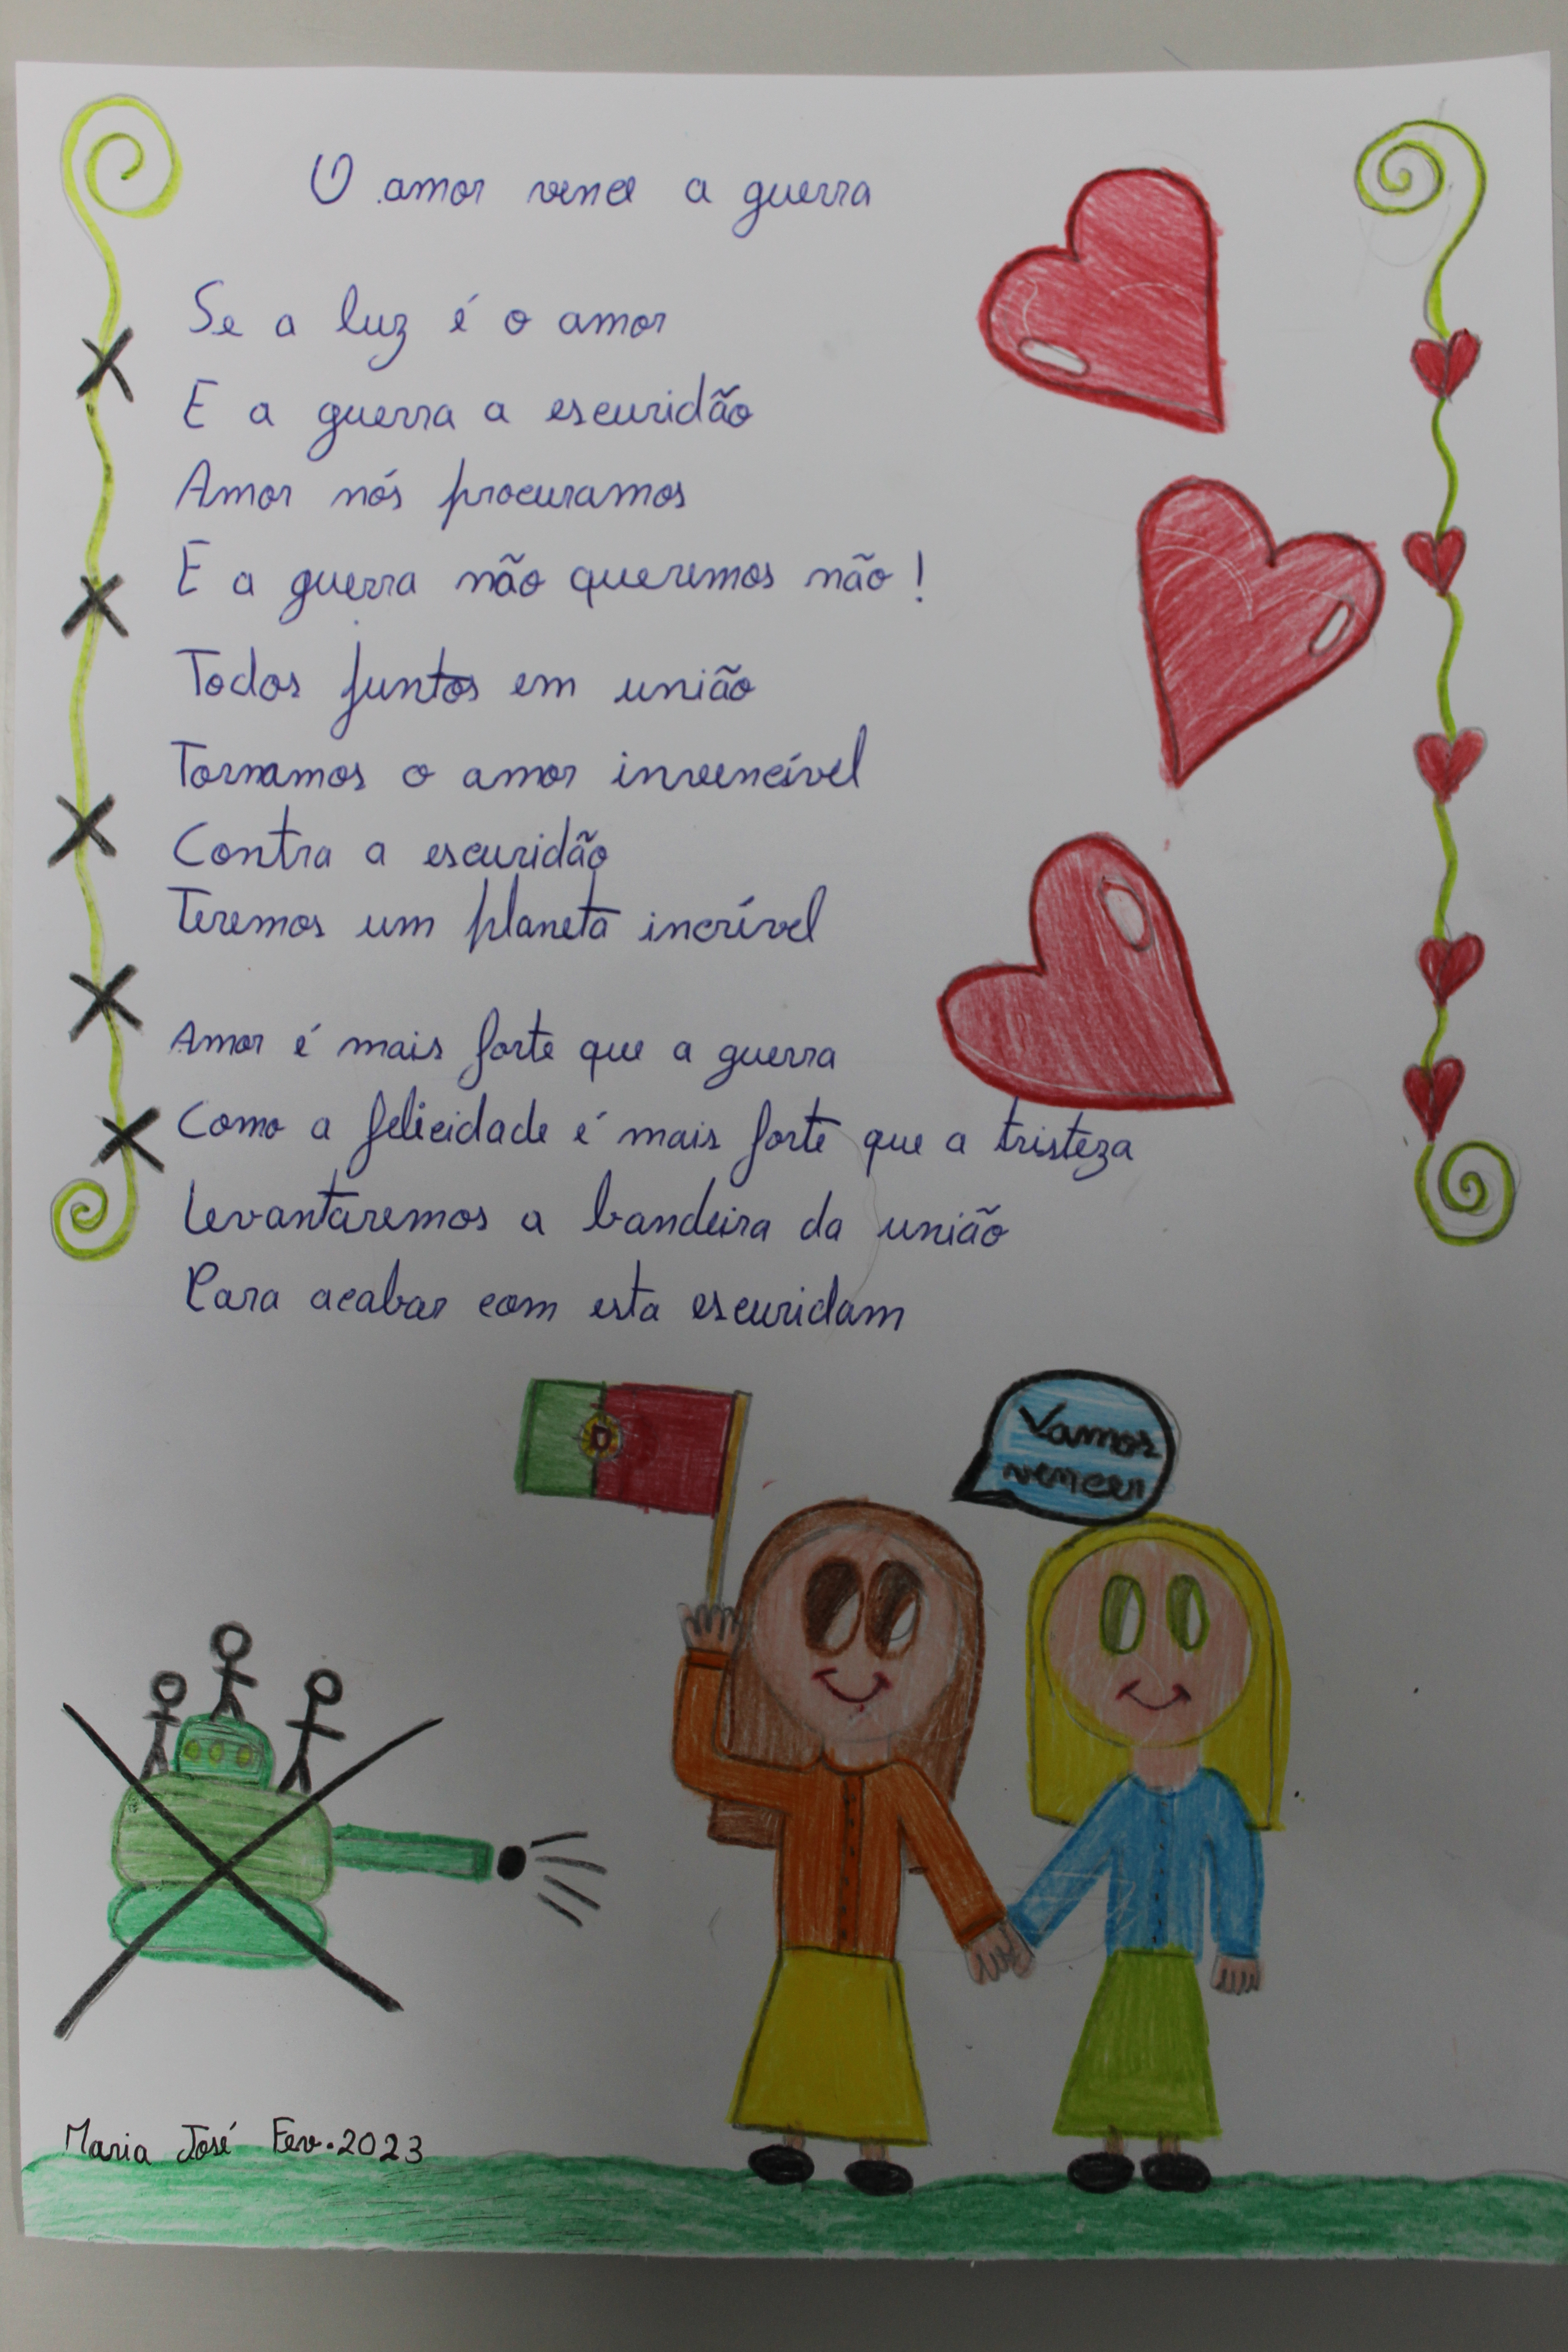 O amor vence a guerra
Se a luz é o amor
E a guerra a escuridão
Amor nós procuramos
E a guerra não queremos não!
Todos juntos em união
Tornamos o amor invencível
Contra a escuridão
Teremos um planeta incrível
Amor é mais forte que a guerra
Como a felicidade é mais forte que a tristeza
Levantaremos a bandeira da união
Para acabar com esta escuridam
Vamos
vencer
Maria José Fev.2023